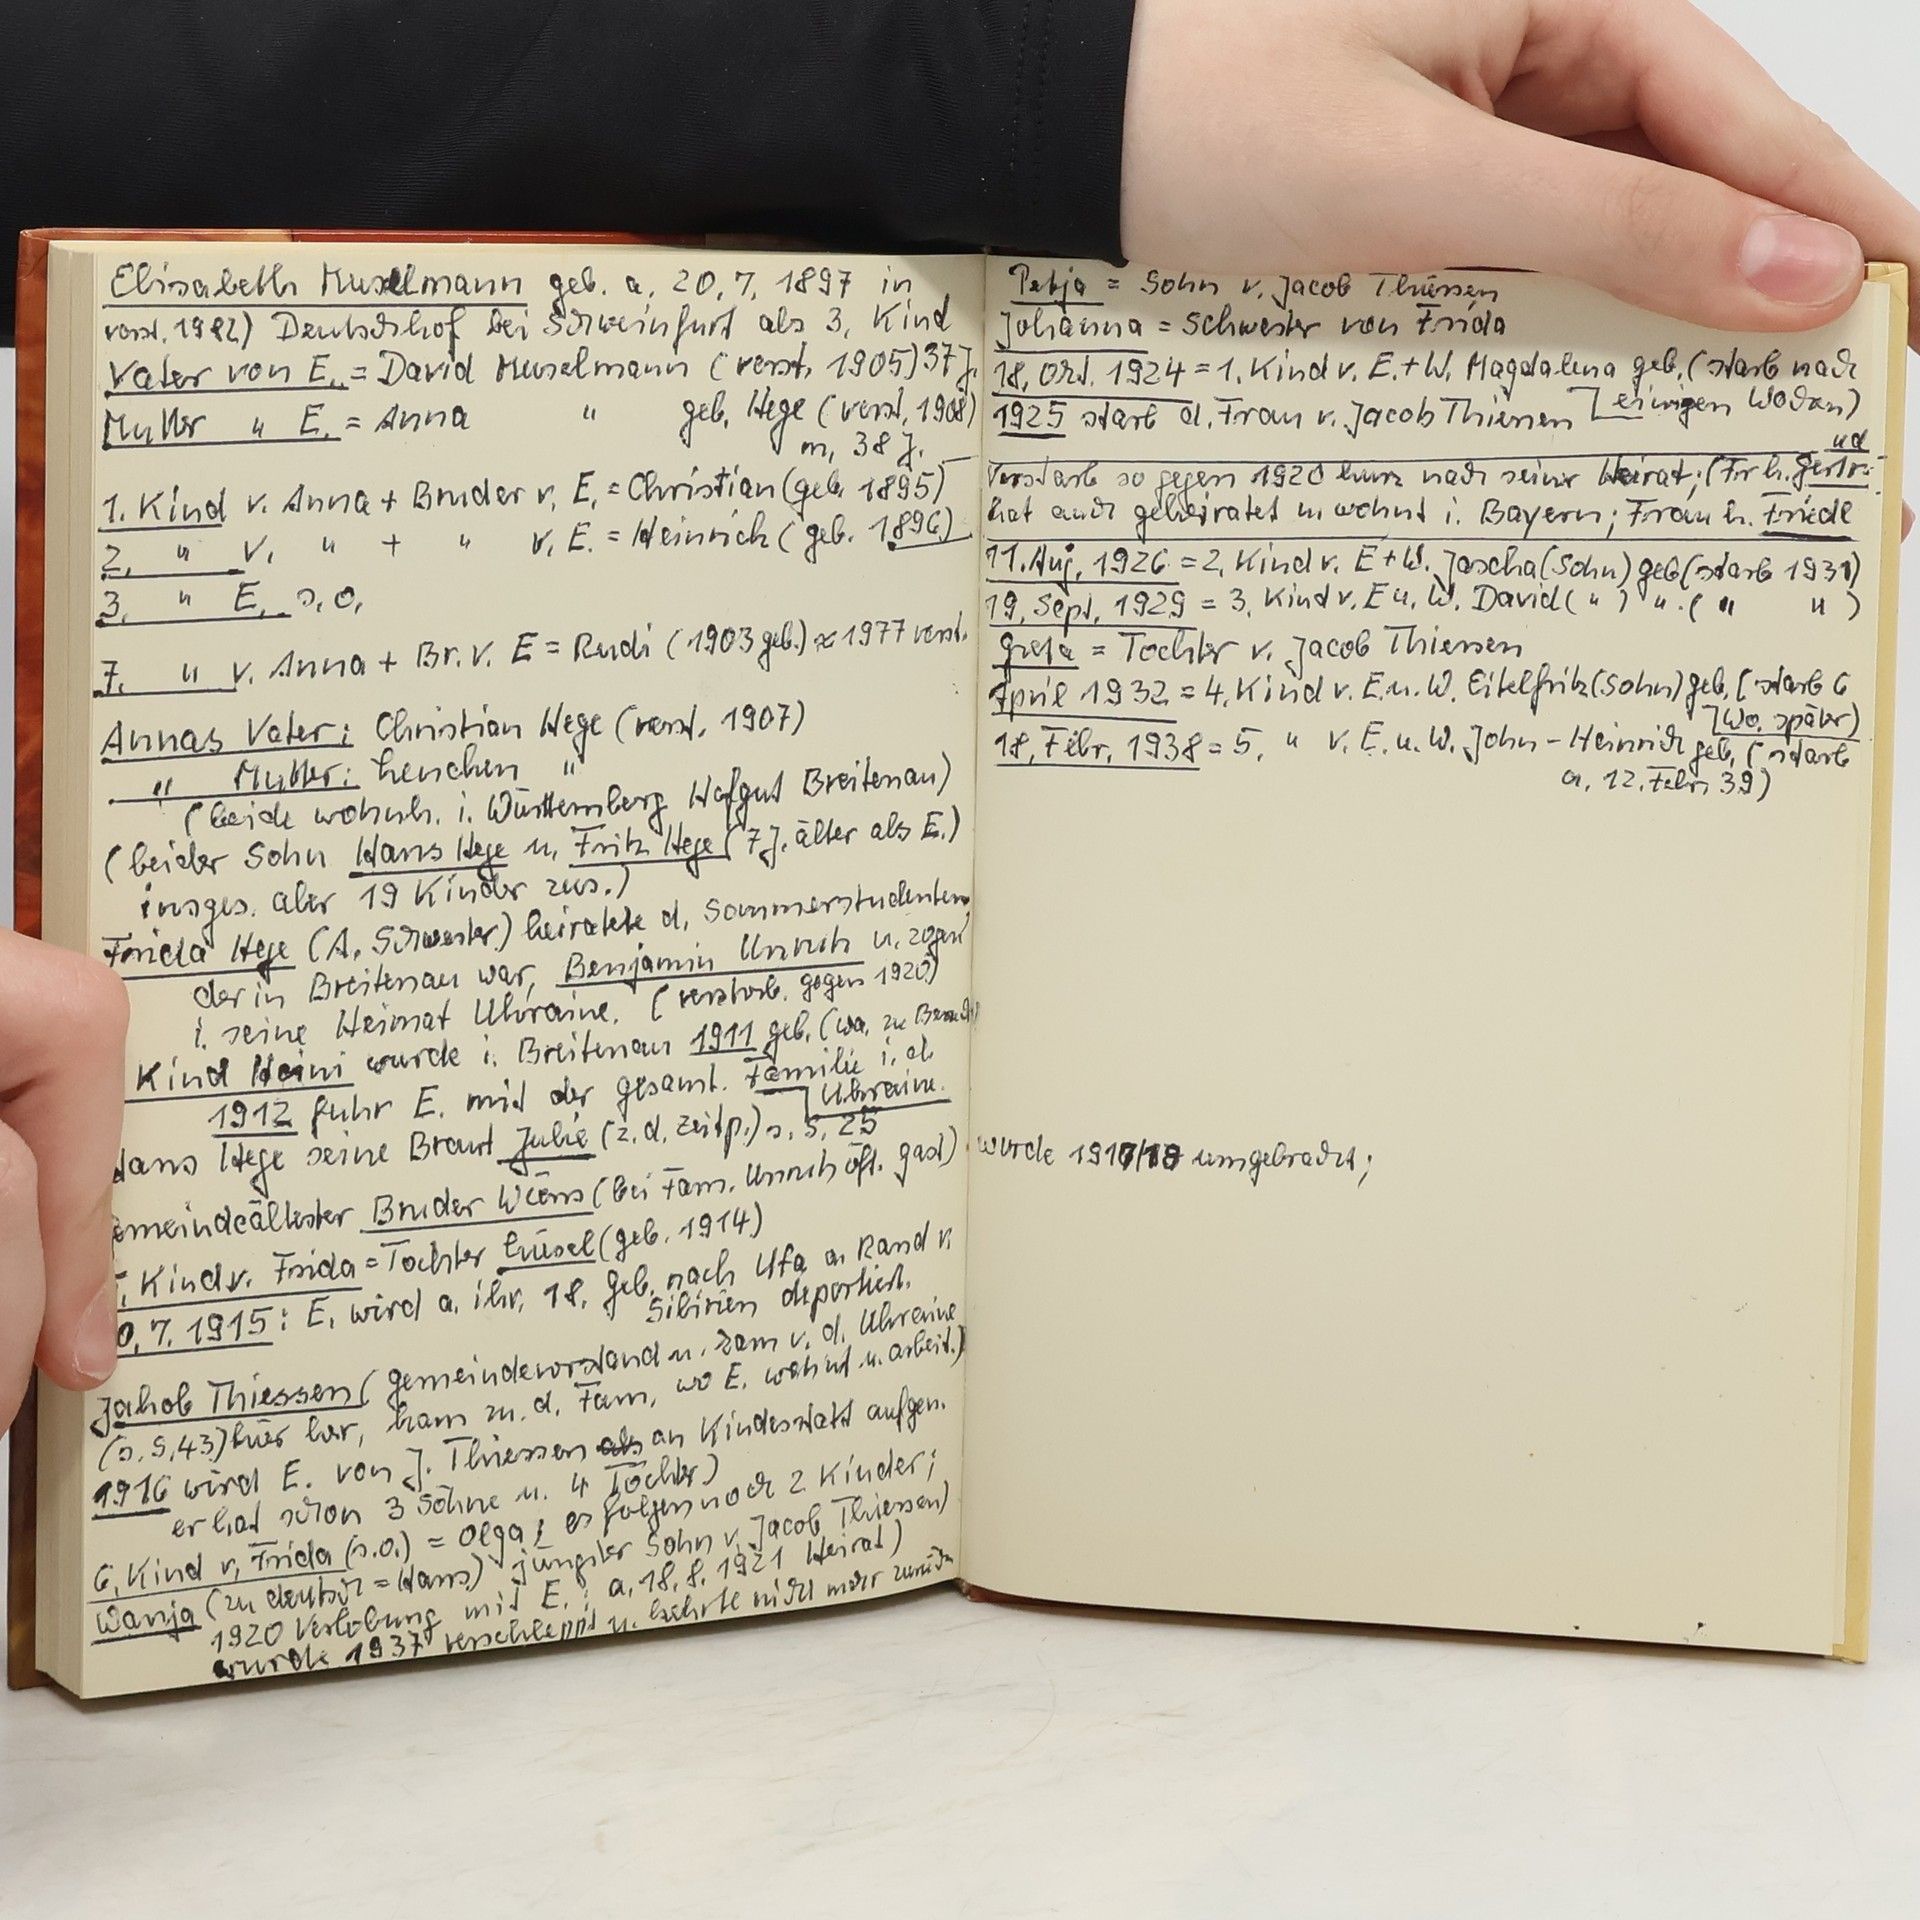 Elisabeth Muselmann geb. a. 20.7.1897 in
verst. 1982) Deutschhof bei Schweinfurt als 3. Kind
Vater von E. = David Muselmann (verst. 1905) 37 J.
Mutter " E. = Anna " geb. Hege (verst. 1908)
m. 38 J.
1. Kind v. Anna + Bruder v. E. = Christian (geb. 1895)
2. " v. " + " v. E. = Heinrich (geb. 1896)
3. " E. s.o.
7. " v. Anna + Br. v. E = Rudi (1903 geb.) ≈ 1977 verst.
Annas Vater: Christian Hege (verst. 1907)
" Mutter: Lenchen "
(beide wohnh. i. Württemberg Hofgut Breitenau)
(beider Sohn Hans Hege u. Fritz Hege (7 J. älter als E.)
insges. aber 19 Kinder zus.)
Frida Hege (A. Schwester) heiratete d. Sommerstudenten,
der in Breitenau war, Benjamin Unruh u. zogen
i. seine Heimat Ukraine. (verstorb. gegen 1920)
Kind Heini wurde i. Breitenau 1911 geb. (wa. zu Besuch)
1912 fuhr E. mit der gesamt. Familie i. d.
Ukraine.
Hans Hege seine Braut Julie (z. d. Zeitp.) s. S. 25
emeindeältester Bruder Wiens (bei Fam. Unruh öft. Gast)
. Kind v. Frida = Tochter Liesel (geb. 1914)
0.7.1915: E. wird a. ihr. 18. Geb. nach Ufa a. Rand v.
Sibirien deportiert.
Jakob Thiessen (Gemeindevorstand u. kam v. d. Ukraine
(s. S. 43) hier her, kam zu d. Fam, wo E. wohnt u. arbeit.)
1916 wird E. von J. Thiessen als an Kindesstatt aufgen.
er hat schon 3 Söhne u. 4 Töchter)
6. Kind v. Frida (s.o.) = Olga; es folgen noch 2 Kinder;
Wanja (zu deutsch = Hans) jüngster Sohn v. Jacob Thiessen)
1920 Verlobung mit E.; a. 18.8.1921 Heirat)
wurde 1937 verschleppt u. kehrte nicht mehr zurück
Petja = Sohn v. Jacob Thiessen
Johanna = Schwester von Frida
18. Okt. 1924 = 1. Kind v. E. + W. Magdalena geb. (starb nach
einigen Wochen)
1925 starb d. Frau v. Jacob Thiessen
ud
verstarb so gegen 1920 kurz nach seiner Heirat; (Fr. h. Gertr.
hat auch geheiratet u. wohnt i. Bayern; Frau h. Friedl
11. Aug. 1926 = 2. Kind v. E + W. Jascha (Sohn) geb (starb 1931)
19. Sept. 1929 = 3. Kind v. E u. W. David ( " ) " ( " " )
Greta = Tochter v. Jacob Thiessen
April 1932 = 4. Kind v. E. u. W. Eitelfritz (Sohn) geb. (starb 6
Wo. später)
18. Febr. 1938 = 5. " v. E. u. W. John-Heinrich geb. (starb
a. 12. Febr. 39)
wurde 1917/18 umgebracht;